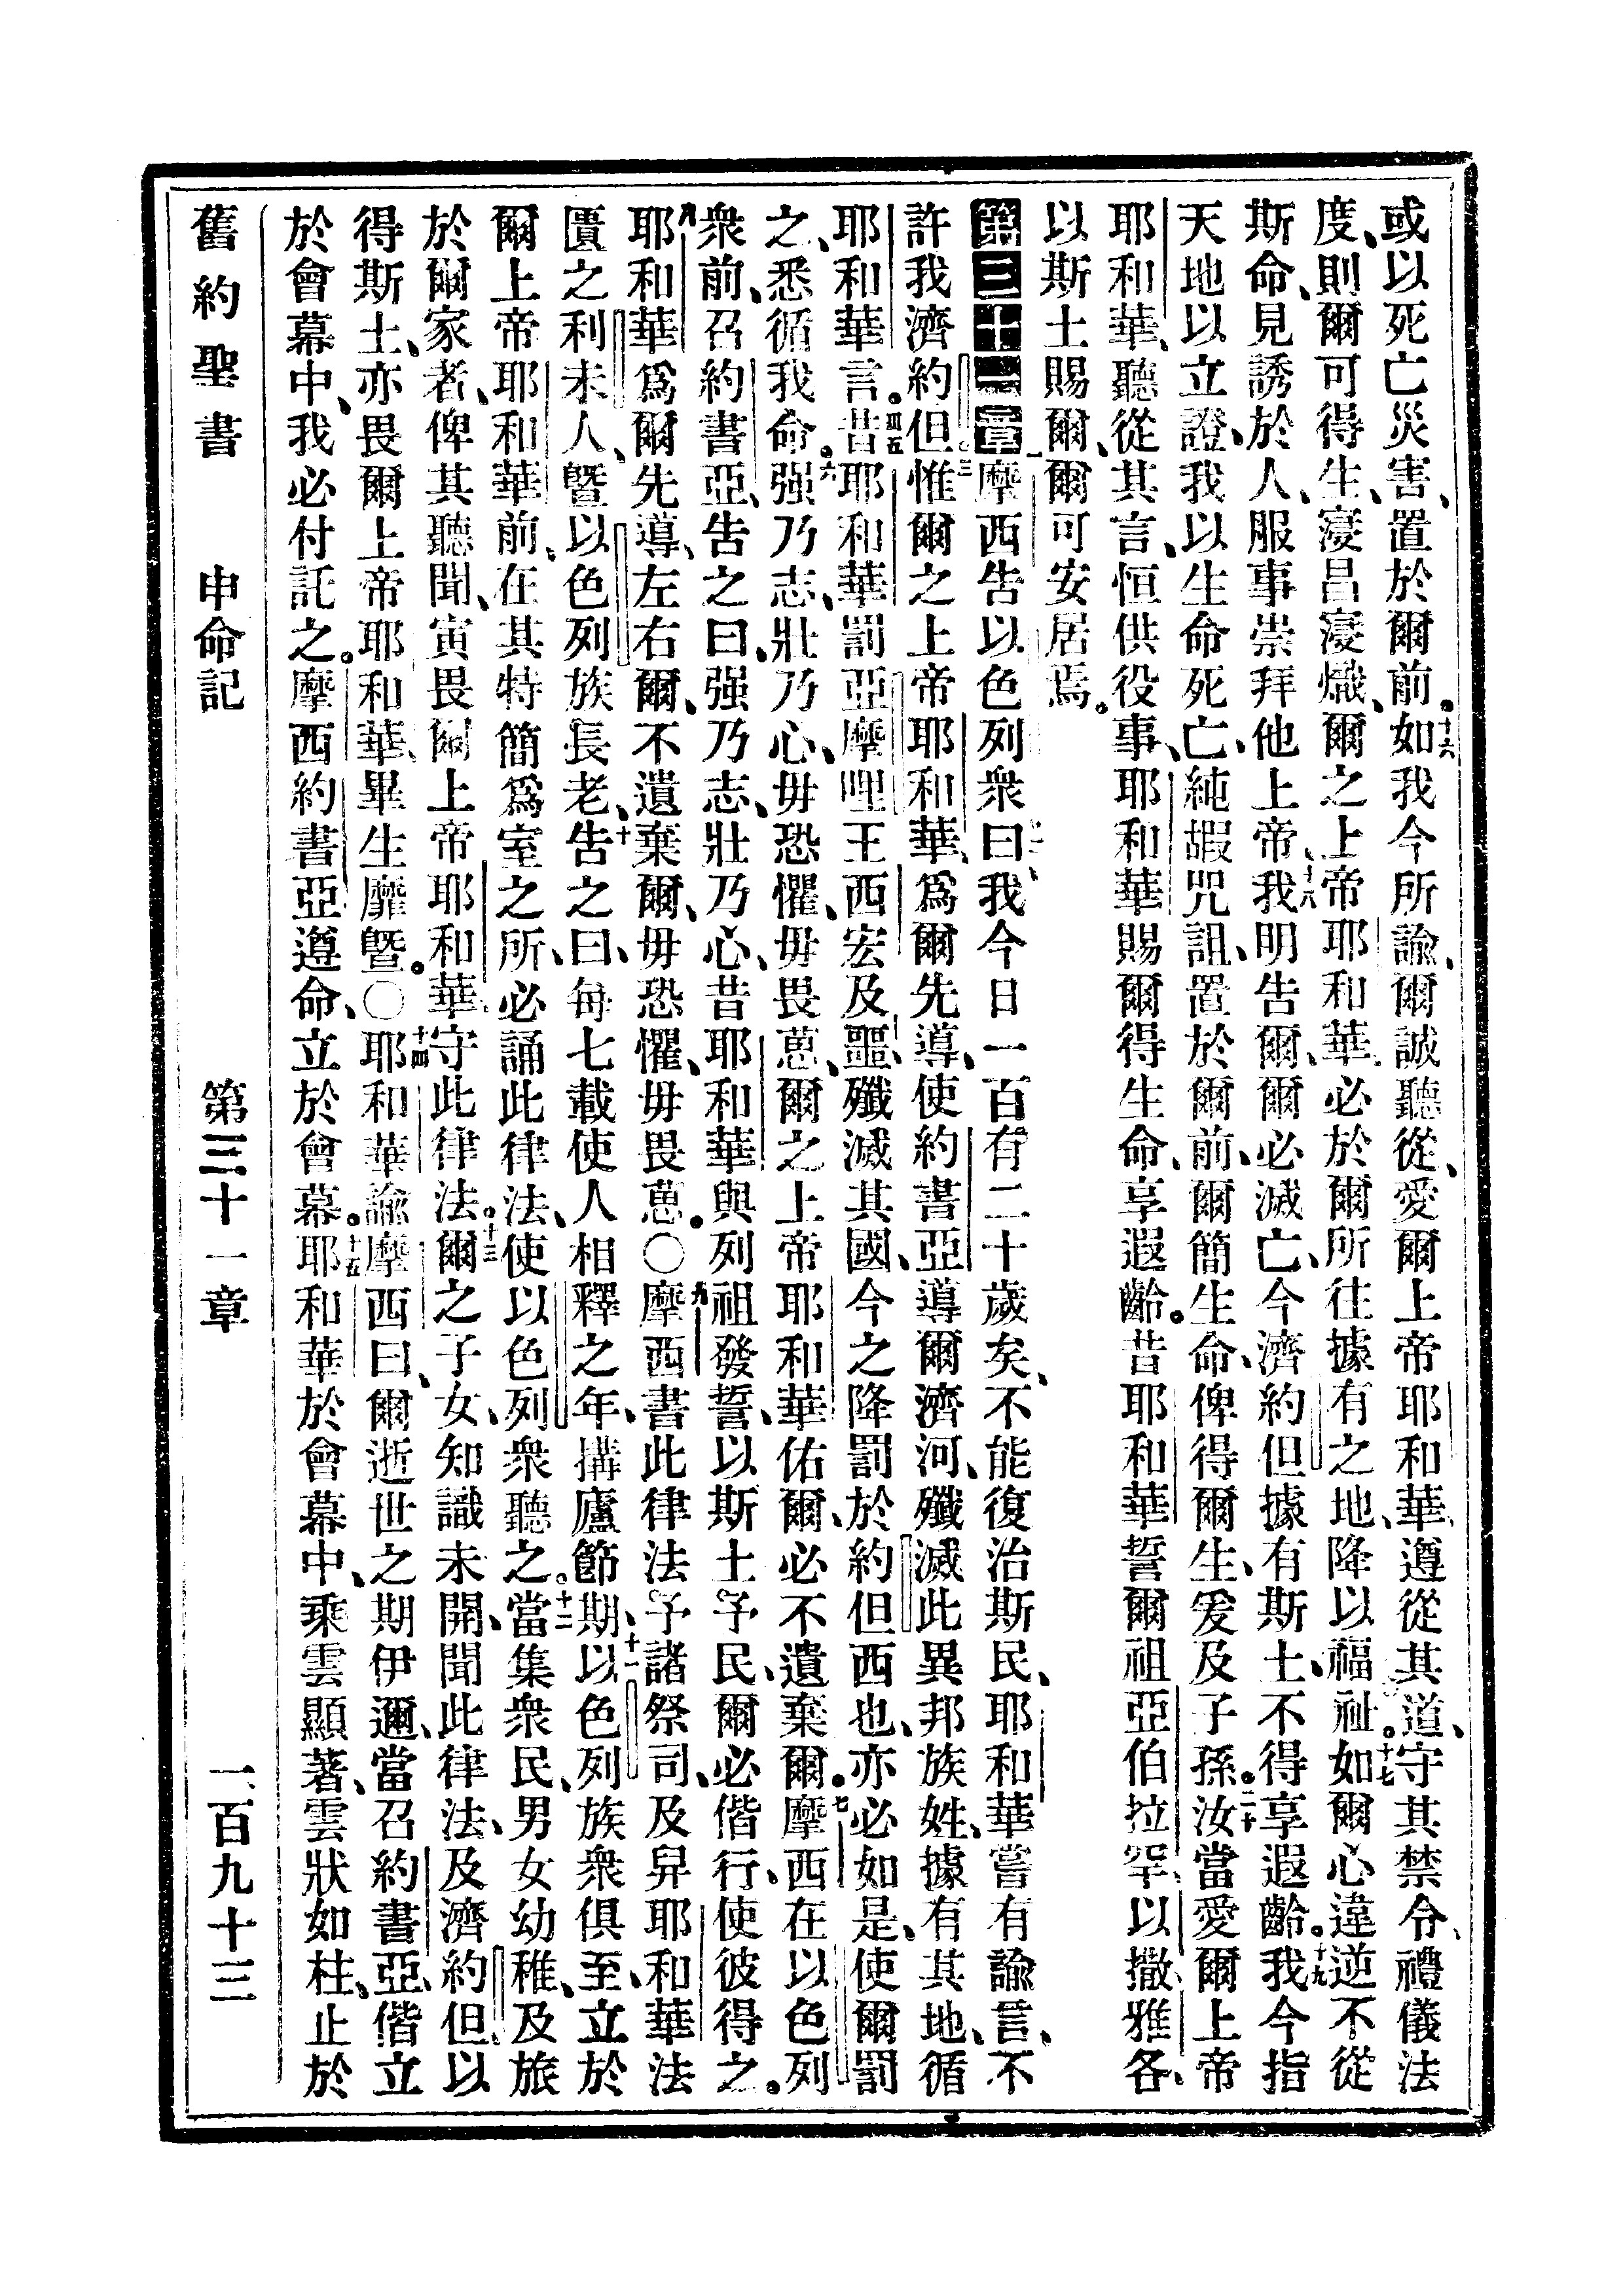 或以死亡災害、置於爾前。十六如我今所諭、爾誠聽從、愛爾上帝耶和華、遵從其道、守其禁令、禮儀法
度、則爾可得生、寖昌寖熾、爾之上帝耶和華、必於爾所往據有之地、降以福祉。十七如爾心違逆不從
斯命、見誘於人、服事崇拜他上帝、十八我明告爾、爾必滅亡、今濟約但據有斯土、不得享遐齡。十九我今指
天地以立證、我以生命死亡、純嘏咒詛、置於爾前、爾簡生命、俾得爾生、爰及子孫。二十汝當愛爾上帝
耶和華、聽從其言、恒供役事、耶和華賜爾得生命、享遐齡。昔耶和華誓爾祖亞伯拉罕、以撒、雅各、
以斯土賜爾、爾可安居焉。
第三十一章一摩西告以色列衆曰、二我今日一百有二十歲矣、不能復治斯民、耶和華嘗有諭言、不
許我濟約但。三惟爾之上帝耶和華、爲爾先導、使約書亞導爾濟河、殲滅此異邦族姓、據有其地、循
耶和華言。四五昔耶和華罰亞摩哩王西宏及噩、殲滅其國、今之降罰於約但西也、亦必如是、使爾罰
之、悉循我命。六强乃志、壯乃心、毋恐懼、毋畏葸、爾之上帝耶和華佑爾、必不遺棄爾。七摩西在以色列
衆前、召約書亞、告之曰、强乃志、壯乃心、昔耶和華與列祖發誓、以斯土予民、爾必偕行、使彼得之。
八耶和華爲爾先導、左右爾、不遺棄爾、毋恐懼、毋畏葸。〇九摩西書此律法、予諸祭司、及舁耶和華法
匱之利未人、曁以色列族長老、十告之曰、每七載使人相釋之年、搆廬節期、十一以色列族衆俱至、立於
爾上帝耶和華前、在其特簡爲室之所、必誦此律法、使以色列衆聽之。十二當集衆民、男女幼稚、及旅
於爾家者、俾其聽聞、寅畏爾上帝耶和華、守此律法。十三爾之子女、知識未開、聞此律法、及濟約但、以
得斯土、亦畏爾上帝耶和華、畢生靡曁。〇十四耶和華諭摩西曰、爾逝世之期伊邇、當召約書亞、偕立
於會幕中、我必付託之。摩西約書亞遵命、立於會幕。十五耶和華於會幕中、乘雲顯著、雲狀如柱、止於
舊約聖書　申命記　第三十一章　一百九十三